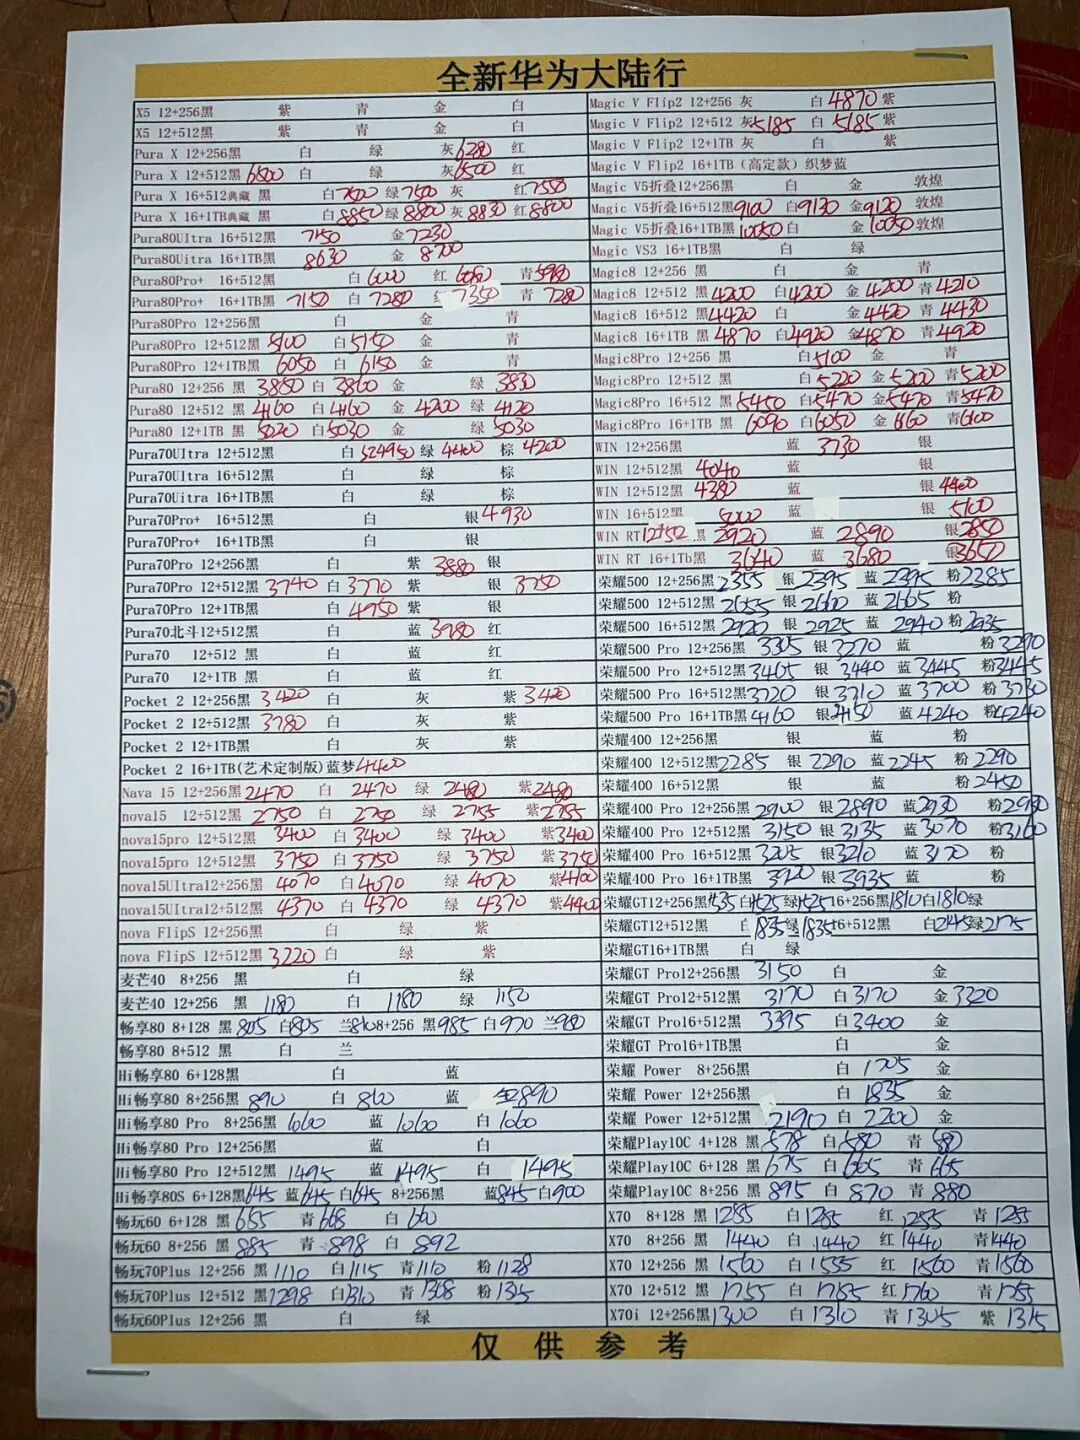 全新华为大陆行
X5 12+256黑 紫 青 金 白
X5 12+512黑 紫 青 金 白
Pura X 12+256黑 白 绿 灰6280 红
Pura X 12+512黑6500 白 绿 灰6500 红
Pura X 16+512典藏 黑 白7500 绿7500 灰 红7550
Pura X 16+1TB典藏 黑 白8850 绿8800 灰8830 红8800
Pura80Ultra 16+512黑 7150 金7230
Pura80Uitra 16+1TB黑 8630 金 8700
Pura80Pro+ 16+512黑 白6020 红6080 青5980
Pura80Pro+ 16+1TB黑 7150 白7280 7350 青 7280
Pura80Pro 12+256黑 白 金 青
Pura80Pro 12+512黑5100 白5150 金 青
Pura80Pro 12+1TB黑 6050 白 6150 金 青
Pura80 12+256 黑 3850 白 3860 金 绿 3830
Pura80 12+512 黑 4160 白4160 金 4200 绿 4120
Pura80 12+1TB 黑 5020 白5030 金 绿 5030
Pura70UItra 12+512黑 白 绿 4400 棕 4200
Pura70Uitra 16+512黑 白 绿 棕
Pura70Uitra 16+1TB黑 白 绿 棕
Pura70Pro+ 16+512黑 白 银4930
Pura70Pro+ 16+1TB黑 白 银
Pura70Pro 12+256黑 白 紫 3880 银
Pura70Pro 12+512黑 3740 白 3770 紫 银 3750
Pura70Pro 12+1TB黑 白 4950 紫 银
Pura70北斗12+512黑 白 蓝 3980 红
Pura70 12+512 黑 白 蓝 红
Pura70 12+1TB 黑 白 蓝 红
Pocket 2 12+256黑 3420 白 灰 紫 3420
Pocket 2 12+512黑 3780 白 灰 紫
Pocket 2 12+1TB黑 白 灰 紫
Pocket 2 16+1TB(艺术定制版)蓝梦4400
Nava 15 12+256黑2470 白 2470 绿 2480 紫2480
nova15 12+512黑 2750 白 2750 绿 2755 紫2755
nova15pro 12+256黑 3400 白3400 绿 3400 紫3400
nova15pro 12+512黑 3750 白3750 绿 3750 紫3750
nova15UItra12+256黑 4070 白4070 绿 4070 紫4100
nova15UItra12+512黑 4370 白 4370 绿 4370 紫4400
nova FlipS 12+256黑 白 绿 紫
nova FlipS 12+512黑 3220 白 绿 紫
麦芒40 8+256 黑 白 绿
麦芒40 12+256 黑 1180 白 1180 绿 1150
畅享80 8+128 黑 805 白805 兰810 8+256 黑985 白970 兰980
畅享80 8+512 黑 白 兰
Hi畅享80 6+128黑 白 蓝
Hi畅享80 8+256黑 890 白 860 蓝 890
Hi畅享80 Pro 8+256黑 1060 蓝 1060 白 1060
Hi畅享80 Pro 12+256黑 蓝 白
Hi畅享80 Pro 12+512黑 1495 蓝 1495 白 1495
Hi畅享80S 6+128黑645 蓝645 白645 8+256黑 蓝845 白900
畅玩60 6+128 黑 655 青668 白 660
畅玩60 8+256 黑 885 青 898 白 892
畅玩70Plus 12+256 黑 1110 白1115 青1110 粉1128
畅玩70Plus 12+512 黑1298 白1310 青1308 粉1315
畅玩60Plus 12+256 黑 白 绿
Magic V Flip2 12+256 灰 白4870 紫
Magic V Flip2 12+512 灰5185 白 5185 紫
Magic V Flip2 12+1TB 灰 白 紫
Magic V Flip2 16+1TB (高定款) 织梦蓝
Magic V5折叠12+256黑 白 金 敦煌
Magic V5折叠16+512黑9100 白9130 金9120 敦煌
Magic V5折叠16+1TB黑10050 白 金10050 敦煌
Magic VS3 16+1TB黑 白 绿
Magic8 12+256 黑 白 金 青
Magic8 12+512 黑4200 白4200 金4200 青4210
Magic8 16+512 黑4420 白 金 4420 青4430
Magic8 16+1TB 黑 4870 白4920 金4870 青4920
Magic8Pro 12+256 黑 白5100 金 青
Magic8Pro 12+512 黑 白 5220 金5200 青5200
Magic8Pro 16+512 黑5450 白5470 金5470 青5470
Magic8Pro 16+1TB 黑 6090 白6050 金 6160 青6100
WIN 12+256黑 蓝 3730 银
WIN 12+512黑 4040 蓝 银
WIN 12+512黑 4380 蓝 银 4400
WIN 16+512黑 5000 蓝 银 5100
WIN RT12+512 黑 2920 蓝 2890 银2850
WIN RT 16+1Tb黑 3640 蓝 3680 银3650
荣耀500 12+256黑2355 银 2395 蓝 2395 粉2385
荣耀500 12+512黑2655 银 2660 蓝 2665 粉
荣耀500 16+512黑 2920 银 2925 蓝 2940 粉2935
荣耀500 Pro 12+256黑 3305 银3270 蓝 粉3290
荣耀500 Pro 12+512黑3465 银 3440 蓝3445 粉3445
荣耀500 Pro 16+512黑3720 银 3710 蓝 3700 粉 3730
荣耀500 Pro 16+1TB黑4160 银4150 蓝 4240 粉4240
荣耀400 12+256黑 银 蓝 粉
荣耀400 12+512黑2285 银 2290 蓝 2245 粉 2290
荣耀400 16+512黑 银 蓝 粉2450
荣耀400 Pro 12+256黑2900 银2890 蓝2930 粉2980
荣耀400 Pro 12+512黑 3150 银3135 蓝3070 粉3160
荣耀400 Pro 16+512黑3205 银3210 蓝 3170 粉
荣耀400 Pro 16+1TB黑 3920 银3935 蓝 粉
荣耀GT12+256黑1535 白1525 绿1525 16+256黑1810白1810绿
荣耀GT12+512黑 白1835 绿1835 16+512黑 白2145绿2175
荣耀GT16+1TB黑 白 绿
荣耀GT Pro12+256黑 3150 白 金
荣耀GT Pro12+512黑 3170 白3170 金3320
荣耀GT Pro16+512黑 3395 白3400 金
荣耀GT Pro16+1TB黑 白 金
荣耀 Power 8+256黑 白 1705 金
荣耀 Power 12+256黑 白 1835 金
荣耀 Power 12+512黑 2190 白 2200 金
荣耀Play10C 4+128 黑578 白580 青 580
荣耀Play10C 6+128 黑675 白665 青 665
荣耀Play10C 8+256 黑 895 白 870 青 880
X70 8+128 黑1285 白1285 红 1255 青1285
X70 8+256 黑 1440 白 1440 红 1440 青1440
X70 12+256 黑 1560 白 1555 红 1560 青1560
X70 12+512 黑 1755 白 1755 红1760 青1755
X70i 12+256黑1300 白 1310 青 1305 紫 1315
仅供参考